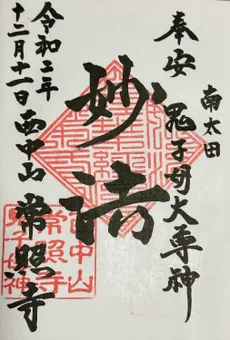 南太田
奉安 鬼子母大尊神
妙法
令和二年
十二月十一日 西中山 常照寺
西中山
常照寺
鬼子母神